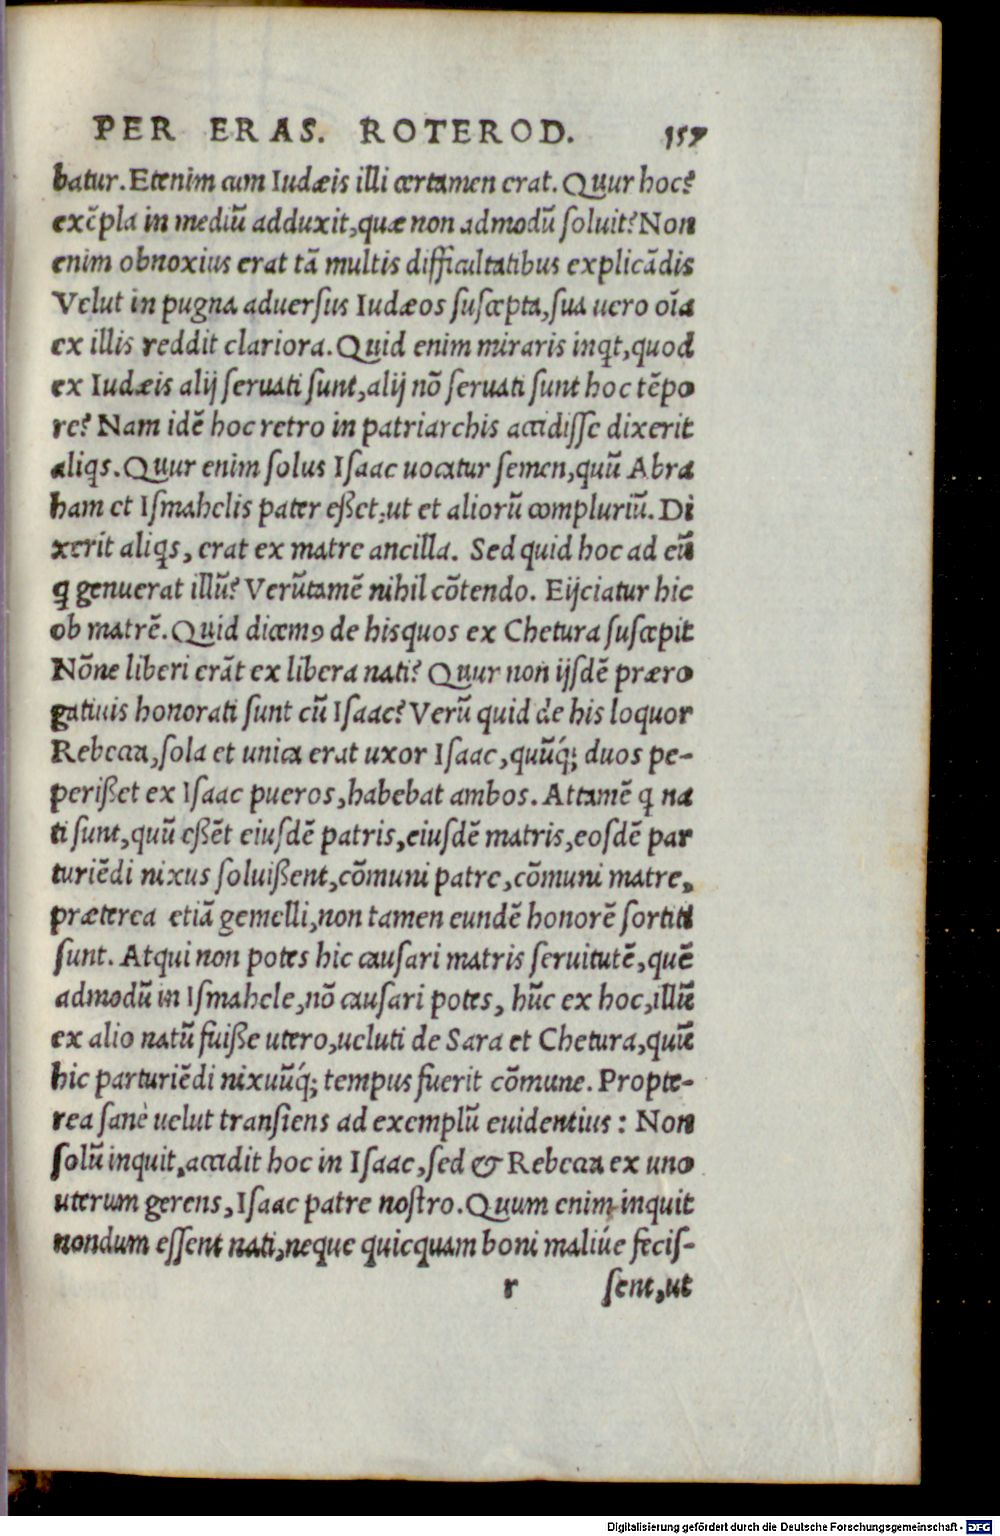 PER ERAS. ROTEROD. 157
batur. Etenim cum Iudæis illi certamen erat. Quur hoc?
exẽpla in mediũ adduxit, quæ non admodũ ſoluit? Non
enim obnoxius erat tã multis difficultatibus explicãdis
Velut in pugna aduerſus Iudæos ſuſcepta, ſua uero oĩa
ex illis reddit clariora. Quid enim miraris inqt, quod
ex Iudæis alij ſeruati ſunt, alij nõ ſeruati ſunt hoc tẽpo
re? Nam idẽ hoc retro in patriarchis accidiſſe dixerit
aliqs. Quur enim ſolus Iſaac uocatur ſemen, quũ Abra
ham et Iſmahelis pater eßet: ut et aliorũ compluriũ. Di
xerit aliqs, erat ex matre ancilla. Sed quid hoc ad eũ
q genuerat illũ? Verũtamẽ nihil cõtendo. Eijciatur hic
ob matrẽ. Quid dicemꝯ de his quos ex Chetura ſuſcepit
Nõne liberi erãt ex libera nati? Quur non ijſdẽ præro
gatiuis honorati ſunt cũ Iſaac? Verũ quid de his loquor
Rebecca, ſola et unica erat uxor Iſaac, quũq́; duos pe-
perißet ex Iſaac pueros, habebat ambos. Attamẽ q na
ti ſunt, quũ eßẽt eiuſdẽ patris, eiuſdẽ matris, eoſdẽ par
turiẽdi nixus ſoluißent, cõmuni patre, cõmuni matre,
præterea etiã gemelli, non tamen eundẽ honorẽ ſortiti
ſunt. Atqui non potes hic cauſari matris ſeruitutẽ, quẽ
admodũ in Iſmahele, nõ cauſari potes, hũc ex hoc, illũ
ex alio natũ fuiße utero, ueluti de Sara et Chetura, quũ
hic parturiẽdi nixuũq́; tempus fuerit cõmune. Propte-
rea ſanè uelut tranſiens ad exemplũ euidentius: Non
ſolũ inquit, accidit hoc in Iſaac, ſed & Rebecca ex uno
uterum gerens, Iſaac patre noſtro. Quum enim inquit
nondum eſſent nati, neque quicquam boni maliúe feciſ-
r ſent, ut
Digitalisierung gefördert durch die Deutsche Forschungsgemeinschaft - DFG